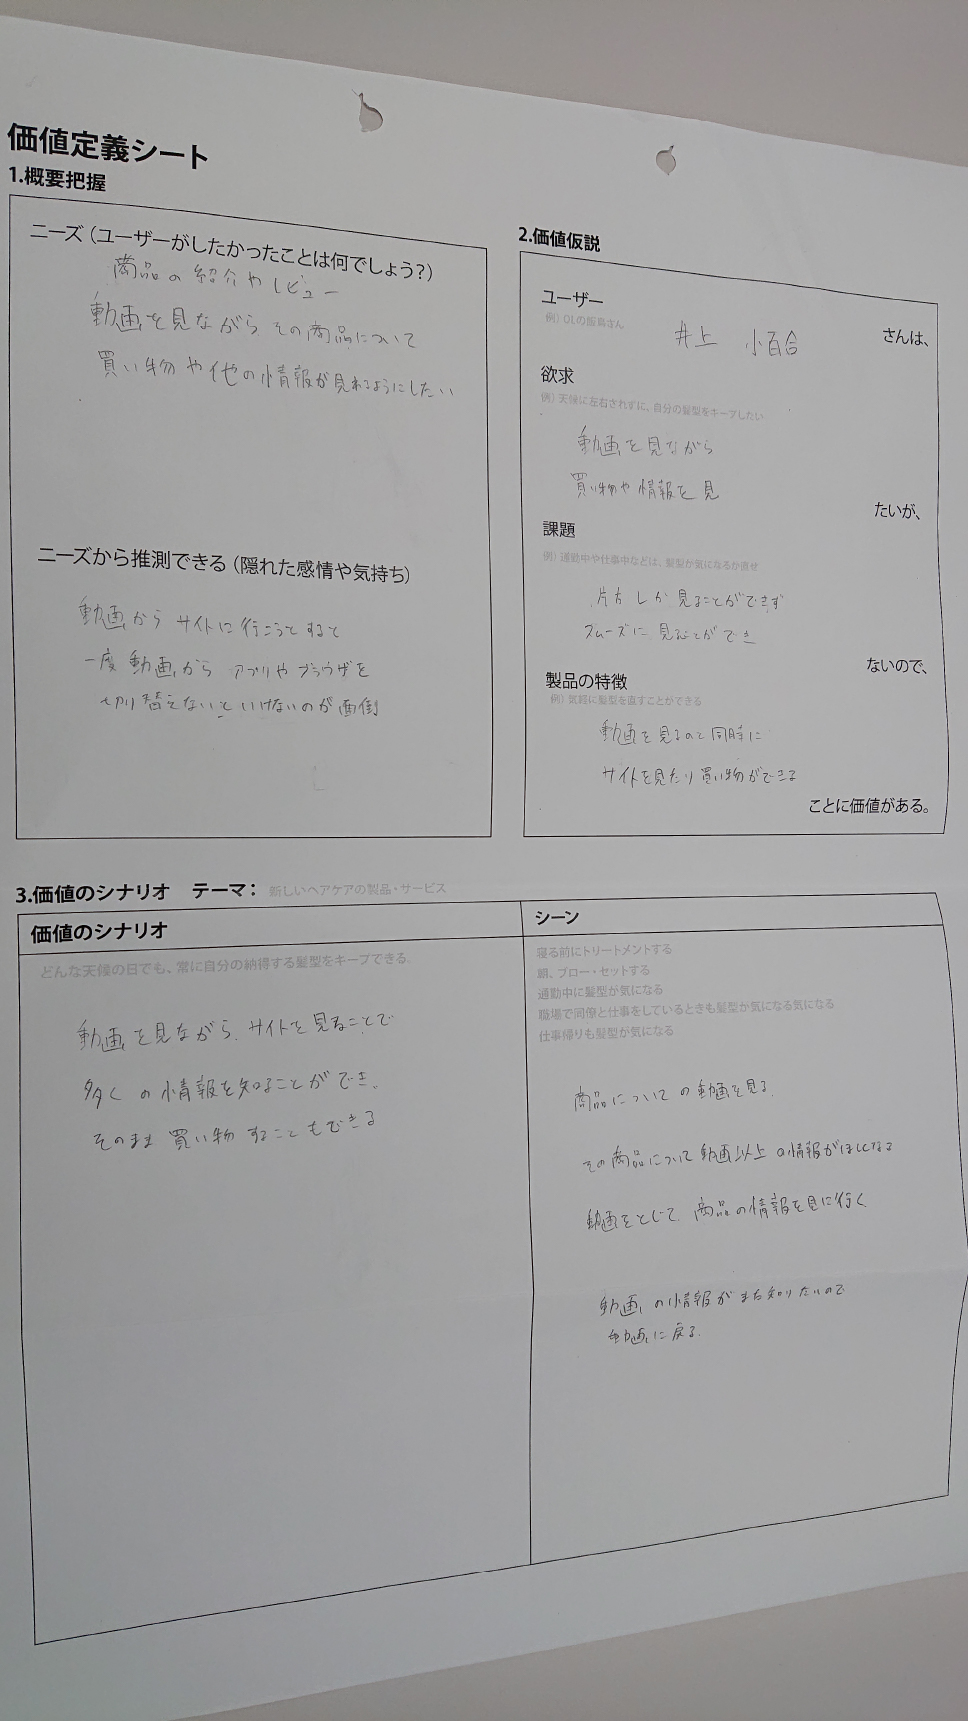 価値定義シート
1.概要把握
ニーズ（ユーザーがしたかったことは何でしょう？）
商品の紹介やレビュー
動画を見ながら その商品について
買い物や他の情報が見れるようにしたい
ニーズから推測できる（隠れた感情や気持ち）
動画から サイトに行こうとすると
一度 動画から アプリや ブラウザを
切り替えないといけないのが面倒
2.価値仮説
ユーザー
例）OLの飯島さん
井上 小百合
さんは、
欲求
例）天候に左右されずに、自分の髪型をキープしたい
動画を見ながら
買い物や情報を見
たいが、
課題
例）通勤中や仕事中などは、髪型が気になるか直せ
片方しか見ることができず
スムーズに見ることができ
ないので、
製品の特徴
例）気軽に髪型を直すことができる
動画を見るのと同時に
サイトを見たり買い物ができる
ことに価値がある。
3.価値のシナリオ テーマ： 新しいヘアケアの製品・サービス
価値のシナリオ
どんな天候の日でも、常に自分の納得する髪型をキープできる
動画を見ながら、サイトを見ることで
多くの情報を知ることができ、
そのまま 買い物することもできる
シーン
寝る前にトリートメントする
朝、ブロー・セットする
通勤中に髪型が気になる
職場で同僚と仕事をしているときも髪型か気になる気になる
仕事帰りも髪型が気になる
商品についての動画を見る
その商品について動画以上の情報がほしくなる
動画をとじて、商品の情報を見に行く
動画の情報がまた知りたいので
動画に戻る